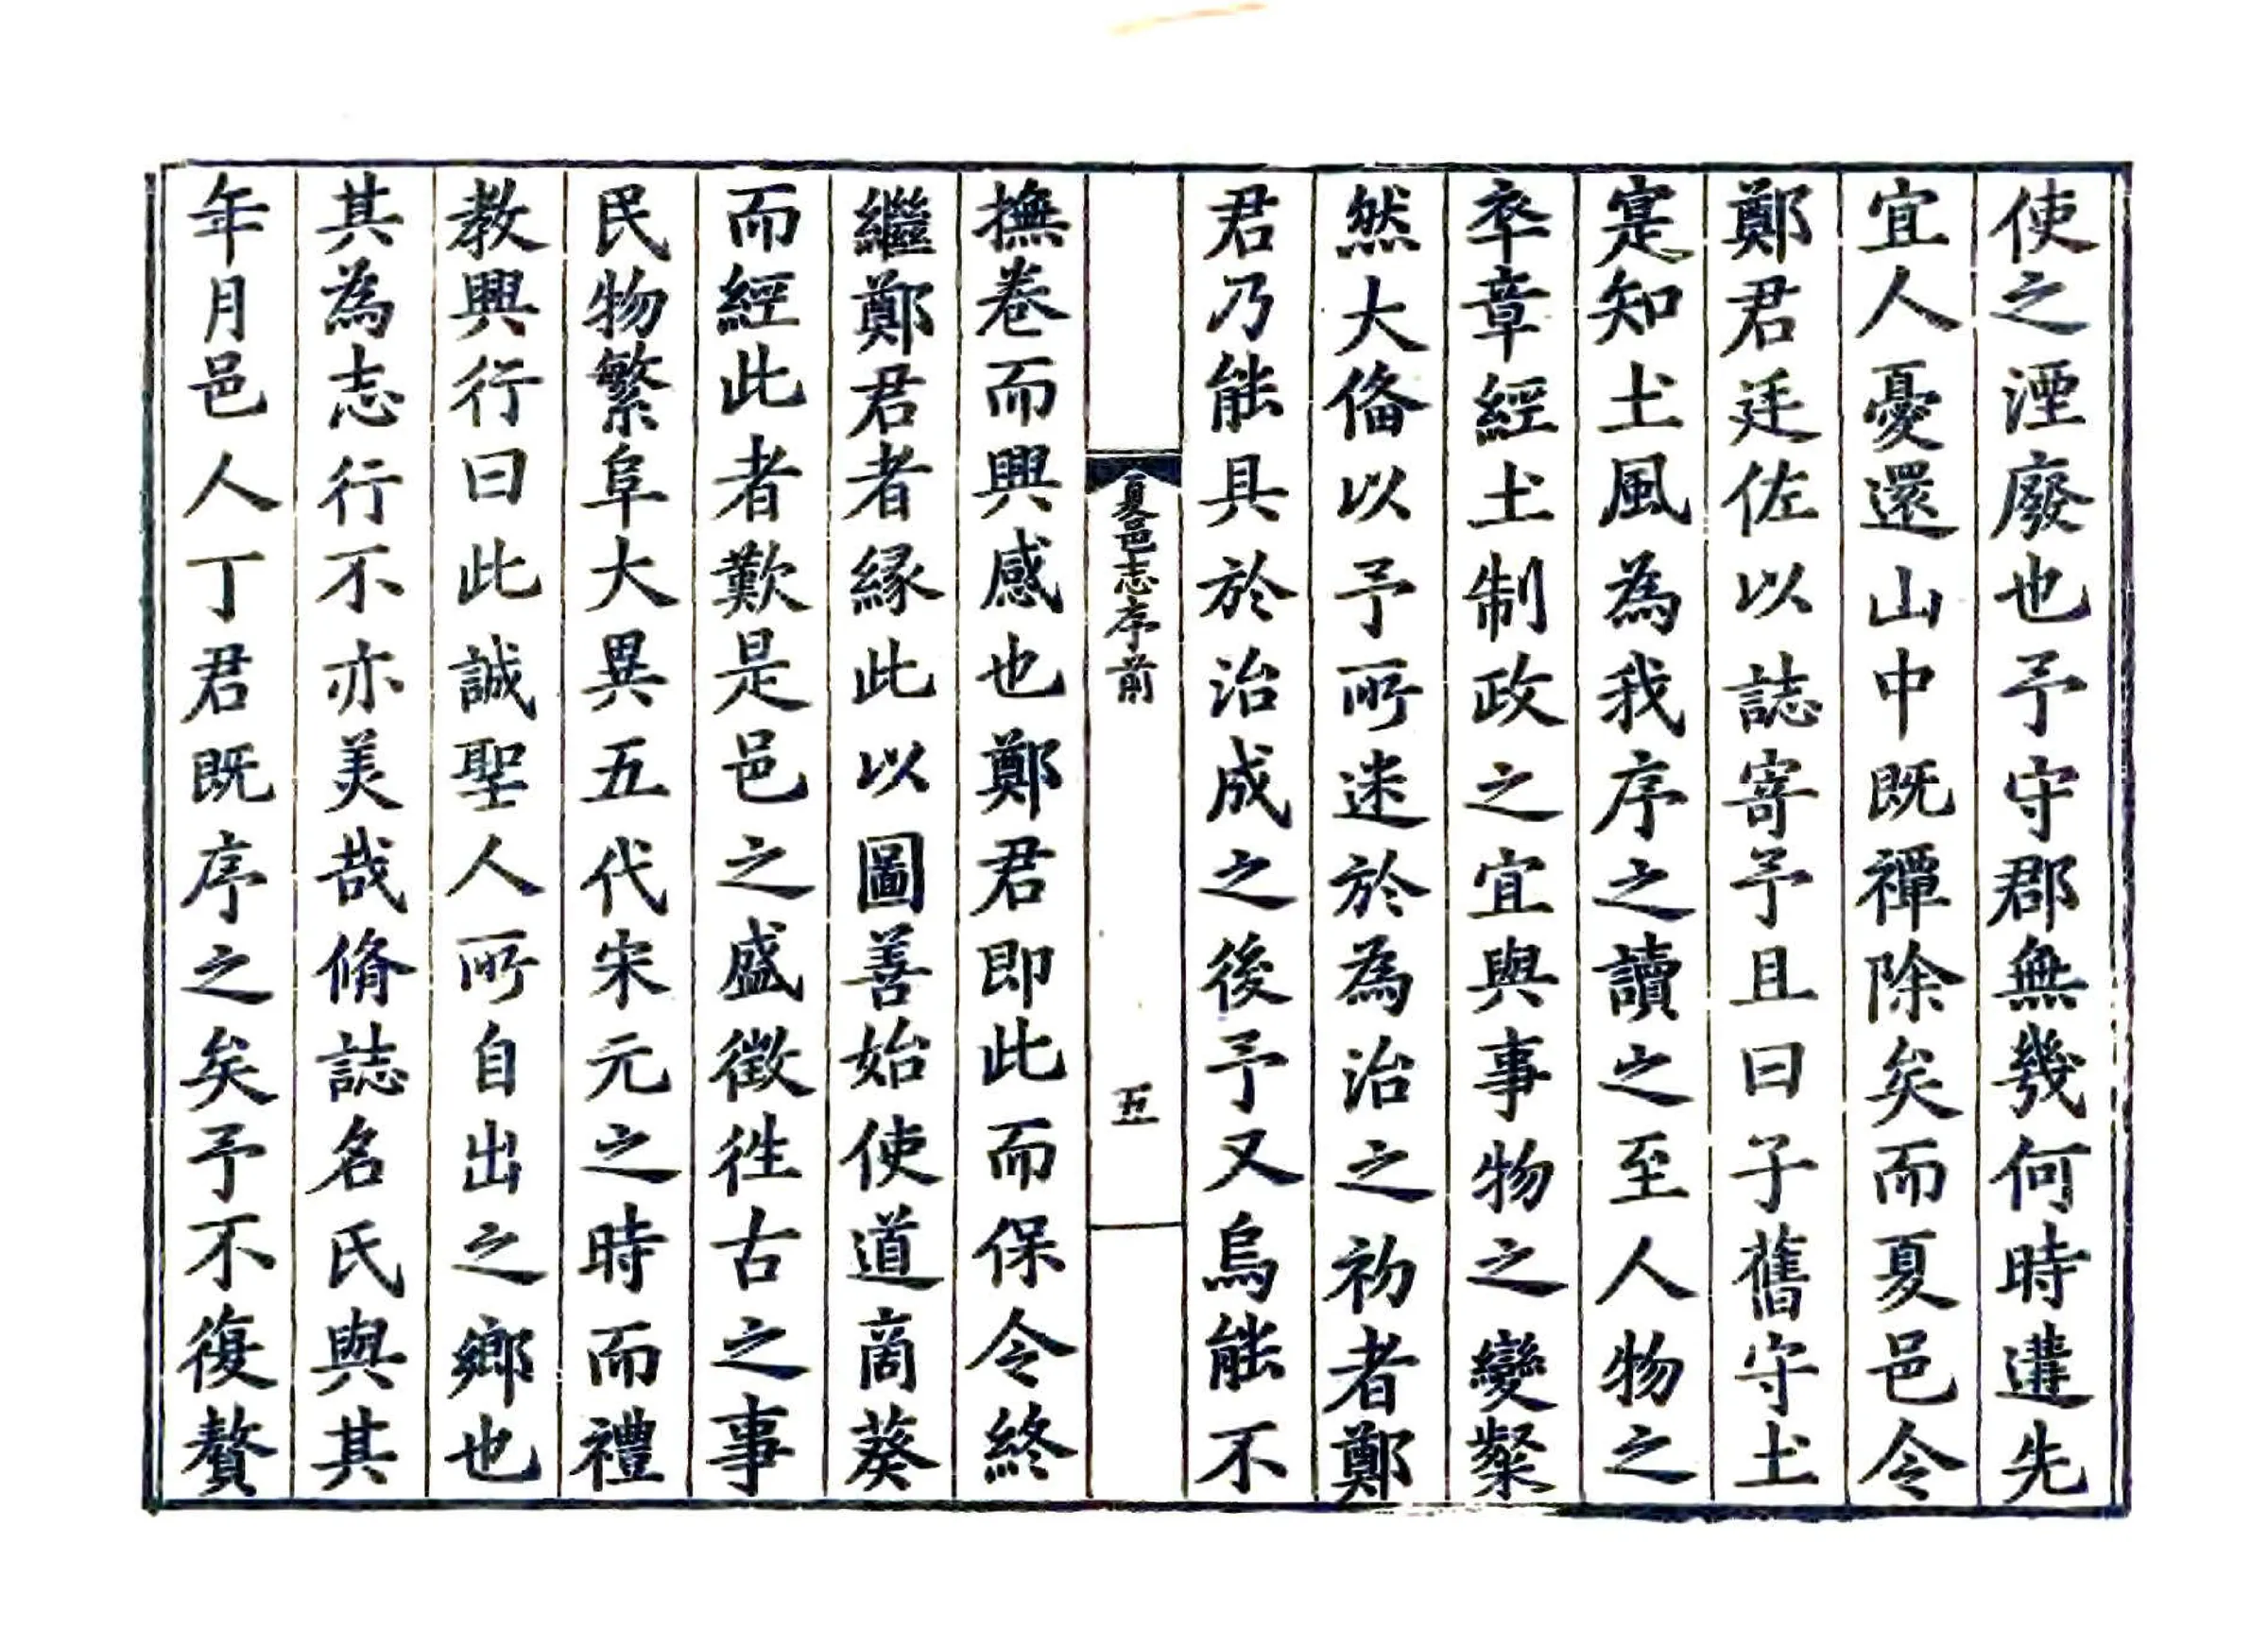 使之湮廢也予守郡無幾何時違先
宜人憂還山中既禫除矣而夏邑令
鄭君廷佐以誌寄予且曰子舊守土
寔知土風為我序之讀之至人物之
卒章經土制政之宜與事物之變粲
然大俻以予所迷於為治之初者鄭
君乃能具於治成之後予又烏能不
夏邑志序前
五
撫巻而興感也鄭君即此而保令終
繼鄭君者緣此以圖善始使道啇葵
而經此者歎是邑之盛徵徃古之事
民物繁阜大異五代宋元之時而禮
教興行曰此誠聖人所自出之鄉也
其為志行不亦美哉脩誌名氏與其
年月邑人丁君既序之矣予不復贅